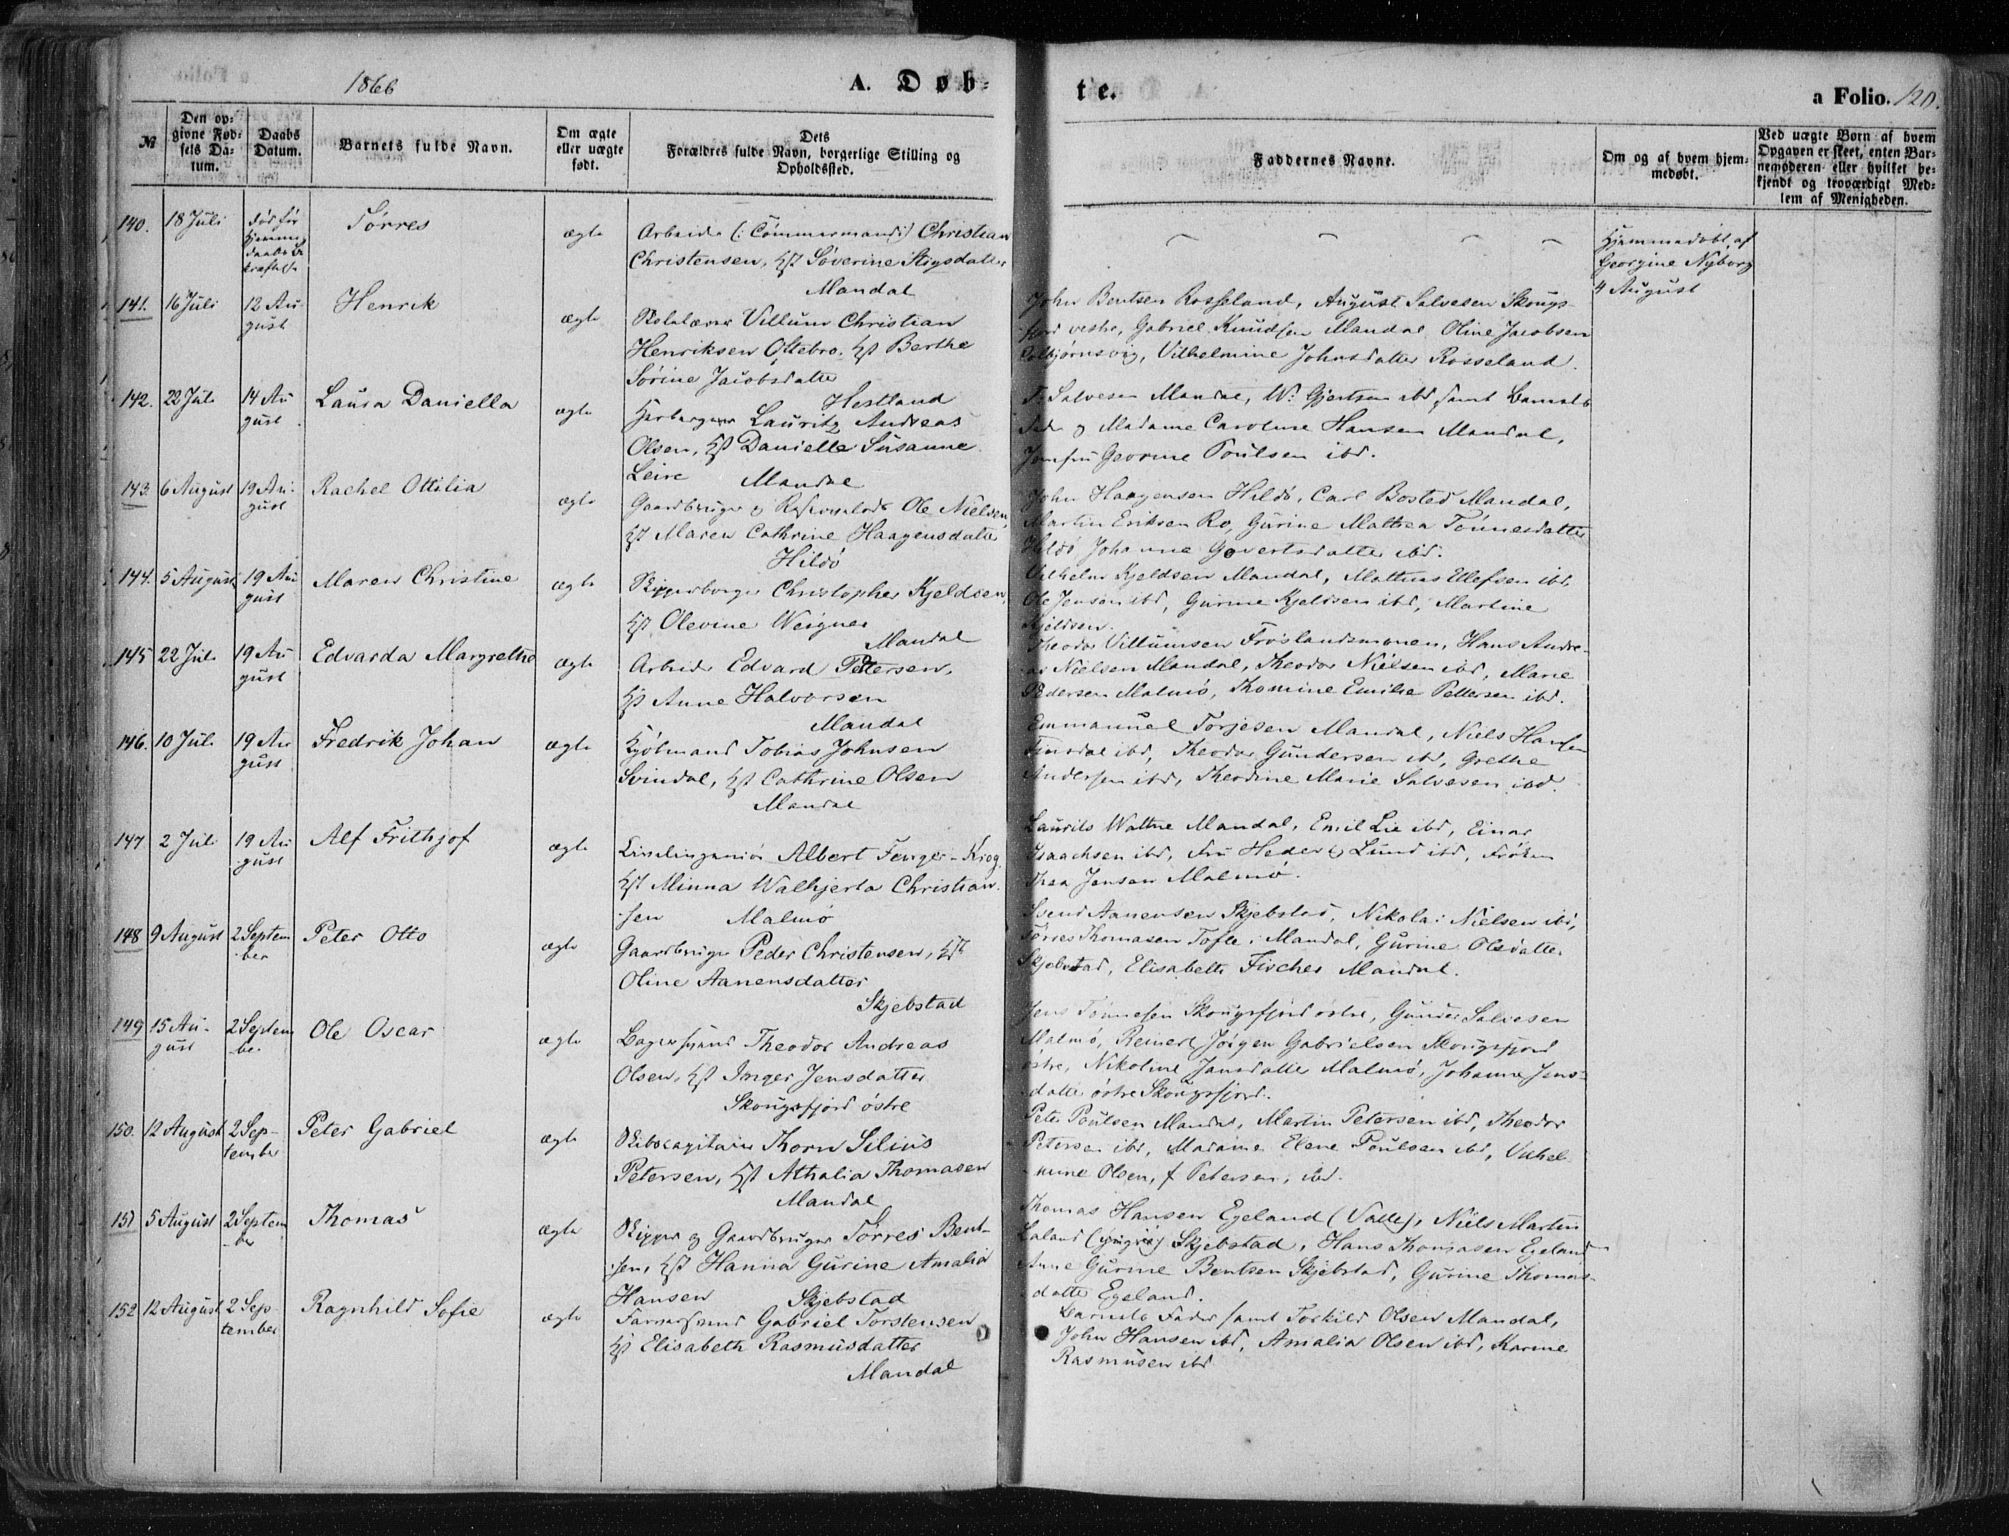 1866
A. Døb-
te.
a Folio. 120.
№
Den op-
givne Fød-
sels Da-
tum.
Daabs
Datum.
Barnets fulde Navn.
Om ægte
eller uægte
født.
Dets
Forældres fulde Navn, borgerlige Stilling og
Opholdssted.
Faddernes Navne.
Om og af hvem hjem-
medøbt.
Ved uægte Børn af hvem
Opgaven er skeet, enten Bar-
nemoderen eller hvilket be-
kjendt og troværdigt Med-
lem af Menigheden.
140. 18 Juli
død før
Hjemme
daabs Be
kræftelse
Tørres
ægte
Arbeider (: Tømmermand :) Christian
Christensen, Hst Søverine Stigsdatter
Mandal
Hjemmedøbt af
Georgine Nyborg
4 August
141. 16 Juli
12 Au
gust
Henrik
ægte
Skolelærer Villum Christian
Henriksen Oftebro, Hst Berthe
Sørine Jacobsdatter
Hestland
John Bentsen Rosseland, August Salvesen Skougs-
fjord vestre, Gabriel Knudsen Mandal Oline Jacobsen
Kolbjørnsvig, Vilhelmine Johnsdatter Rosseland.
142. 22 Juli
14 Au
gust
Laura Daniella
ægte
Lauritz Andreas
Olsen, Hst Danielle Susanne
Leire Mandal
T. Salvesen Mandal, W. Gjertsen ibd samt Barnets
Fader og Madame Caroline Hansen Mandal,
Jomfru Georine Poulsen ibd.
143. 6 August
19 Au-
gust
Rachel Ottilia
ægte
Gaardbruger & Ole Nielsen
Hst Maren Cathrine Haagensdatter
Hildø
John Haagensen Hildø, Carl Bosted Mandal,
Martin Eriksen Ro, Gurine Mathea Tønnesdatter
Hildø, Johanne Govertsdatter ibd.
144. 5 August
19 Au
gust
Maren Christine
ægte
Skipperborger Christopher Kjeldsen,
Hst Olevine Weigner
Mandal
Vilhelm Kjeldsen Mandal, Mathias Ellefsen ibd.
Ole Jensen ibd, Gurine Kjeldsen ibd, Martine
Kjeldsen.
145 22 Juli
19 Au
gust
Edvarda Margrethe
ægte
Arbeider Edvard Petersen,
Hst Anne Halvorsen
Mandal
Theodor Villumsen Frøslandsmonen, Hans Andre-
as Nielsen Mandal, Theodor Nielsen ibd, Marie
Pedersen Malmø, Thomine Emilie Pettersen ibd.
146. 10 Juli
19 Au
gust
Fredrik Johan
ægte
Kjøbmand Tobias Johnsen
Svindal, Hst Cathrine Olsen
Mandal
Emmanuel Torjesen Mandal, Niels Hansen
ibd, Theodor Gundersen ibd, Grethe
Andersen ibd, Theodine Marie Salvesen ibd.
147 2 Juli
19 Au
gust
Alf Frithjof
ægte
Civilingeniør Albert Fenger-Krog
Hst Minna Walhjerta Christian-
sen Malmø
Laurits Wattne Mandal, Emil Lie ibd, Einar
Isaachsen ibd, Fru Hedevig Lund ibd, Frøken
Thea Jensen Malmø.
148 9 August
2 Septem
ber
Peter Otto
ægte
Gaardbruger Peder Christensen, Hst
Oline Aanensdatter
Skjebstad
Svend Aanensen Skjebstad, Nikolai Nielsen ibd,
Tørres Thomasen Tofte i Mandal, Gurine Olsdatter
Skjebstad, Elisabeth Fischer Mandal.
149 15 Au-
gust
2 Septem
ber
Ole Oscar
ægte
Bagersvend Theodor Andreas
Olsen, Hst Inger Jensdatter
Skougsfjord østre
Jens Tønnesen Skougsfjord østre, Gunder Salvesen
Malmø, Reinert Jørgen Gabrielsen Skougsfjord
østre, Nikoline Jansdatter Malmø, Johanne Jens-
datter østre Skougsfjord.
150. 12 August
2 Sep-
tember
Peter Gabriel
ægte
Skibscapitain Thorn Silius
Petersen, Hst Athalia Thomasen
Mandal
Peter Poulsen Mandal, Martin Petersen ibd, Theodor
Petersen ibd, Madame Elene Poulsen ibd, Vilhel
mine Olsen, f Petersen, ibd.
151 5 August
2 Septem
ber
Thomas
ægte
Skipper & Gaardbruger Tørres Bent-
sen, Hst Hanna Gurine Amalia
Hansen Skjebstad
Thomas Hansen Egeland (Valle), Niels Martin
Laland (yngre) Skjebstad, Hans Thomasen Egeland
Anne Gurine Bentsen Skjebstad, Gurine Thomas-
datter Egeland.
152 12 August
2 Sep
tember
Ragnhild Sofie
ægte
Farversvend Gabriel Torstensen
Hst Elisabeth Rasmusdatter
Mandal
Barnets Fader samt Torkild Olsen Mandal,
John Hansen ibd, Amalia Olsen ibd, Karine
Rasmusen ibd